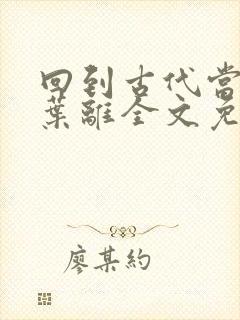 回到古代当
葉離全文免
廖某約